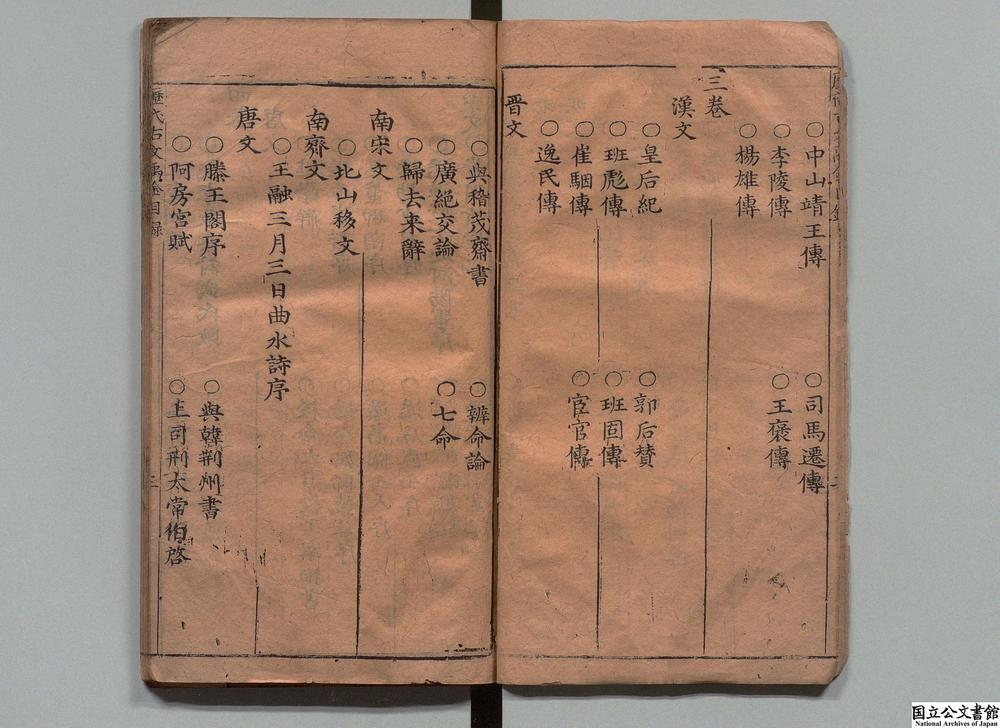 ○中山靖王傳　○司馬遷傳
○李陵傳　○王褒傳
○楊雄傳
三卷
漢文
○皇后紀　○郭后賛
○班彪傳　○班固傳
○崔駰傳　○宦官傳
○逸民傳
晋文
○與稽茂齋書　○辨命論
○廣絶交論　○七命
○歸去来辭
南宋文
○北山移文
南齊文
○王融三月三日曲水詩序
唐文
○滕王閣序　○與韓荆州書
○阿房宮賦　○上司刑太常伯啓
歷代古文 目録　三
国立公文書館
National Archives of Japan